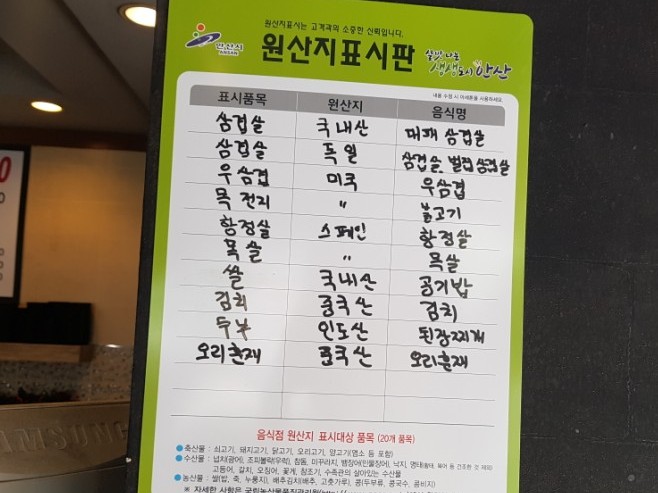 원산지표시는 고객과의 소중한 신뢰입니다.
안산시
ANSAN
원산지표시판
생생도시 안산
내용 수정 시 아세톤을 사용하세요
표시품목 원산지 음식명
삼겹살 국내산 대패 삼겹살
삼겹살 독일 삼겹살, 벌집삼겹살
우삼겹 미국 우삼겹
목전지 〃 불고기
항정살 스페인 항정살
목살 〃 목살
쌀 국내산 공기밥
김치 중국산 김치
두부 인도산 된장찌개
오리훈제 중국산 오리훈제
음식점 원산지 표시대상 품목 (20개 품목)
●축산물 : 쇠고기, 돼지고기, 닭고기, 오리고기, 양고기(염소 등 포함)
●수산물 : 넙치(광어), 조피볼락(우럭), 참돔, 미꾸라지, 뱀장어(민물장어), 낙지, 명태(황태, 북어 등 건조한 것 제외)
고등어, 갈치, 오징어, 꽃게, 참조기, 수족관의 살아있는 수산물
●농산물 : 쌀(밥, 죽, 누룽지), 배추김치(배추, 고춧가루), 콩(두부류, 콩국수, 콩비지)
※ 자세한 사항은 국립농산물품질관리원
SAMSUNG
0